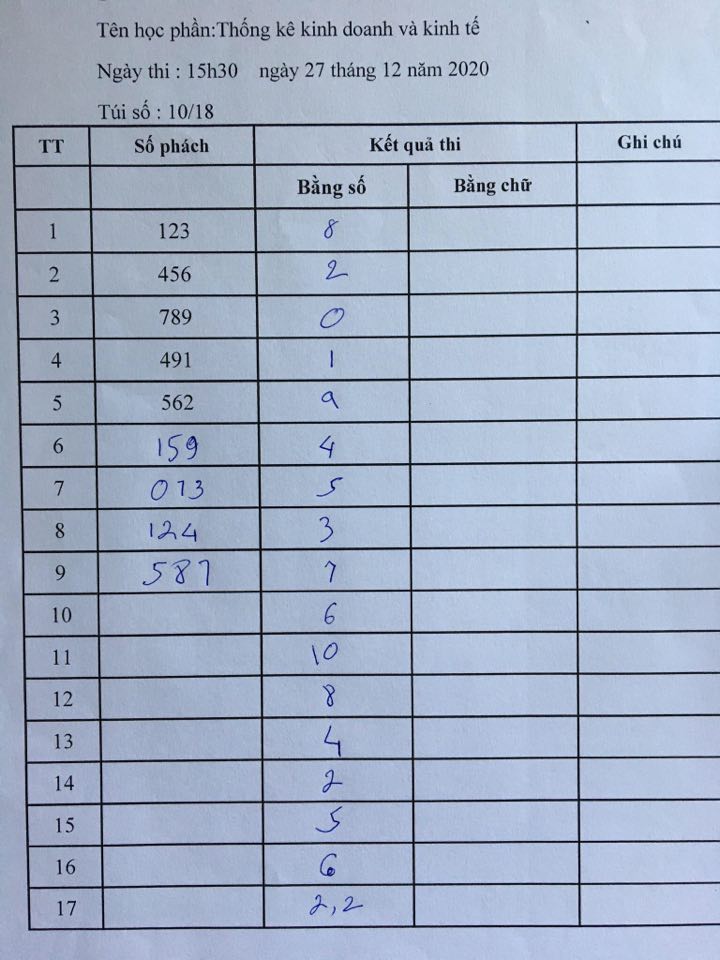 Tên học phần:Thống kê kinh doanh và kinh tế
Ngày thi : 15h30 ngày 27 tháng 12 năm 2020
Túi số : 10/18
TT Số phách Kết quả thi Ghi chú
Bằng số Bằng chữ
1 123 8
2 456 2
3 789 0
4 491 1
5 562 9
6 159 4
7 013 5
8 124 3
9 587 7
10 6
11 10
12 8
13 4
14 2
15 5
16 6
17 2,2